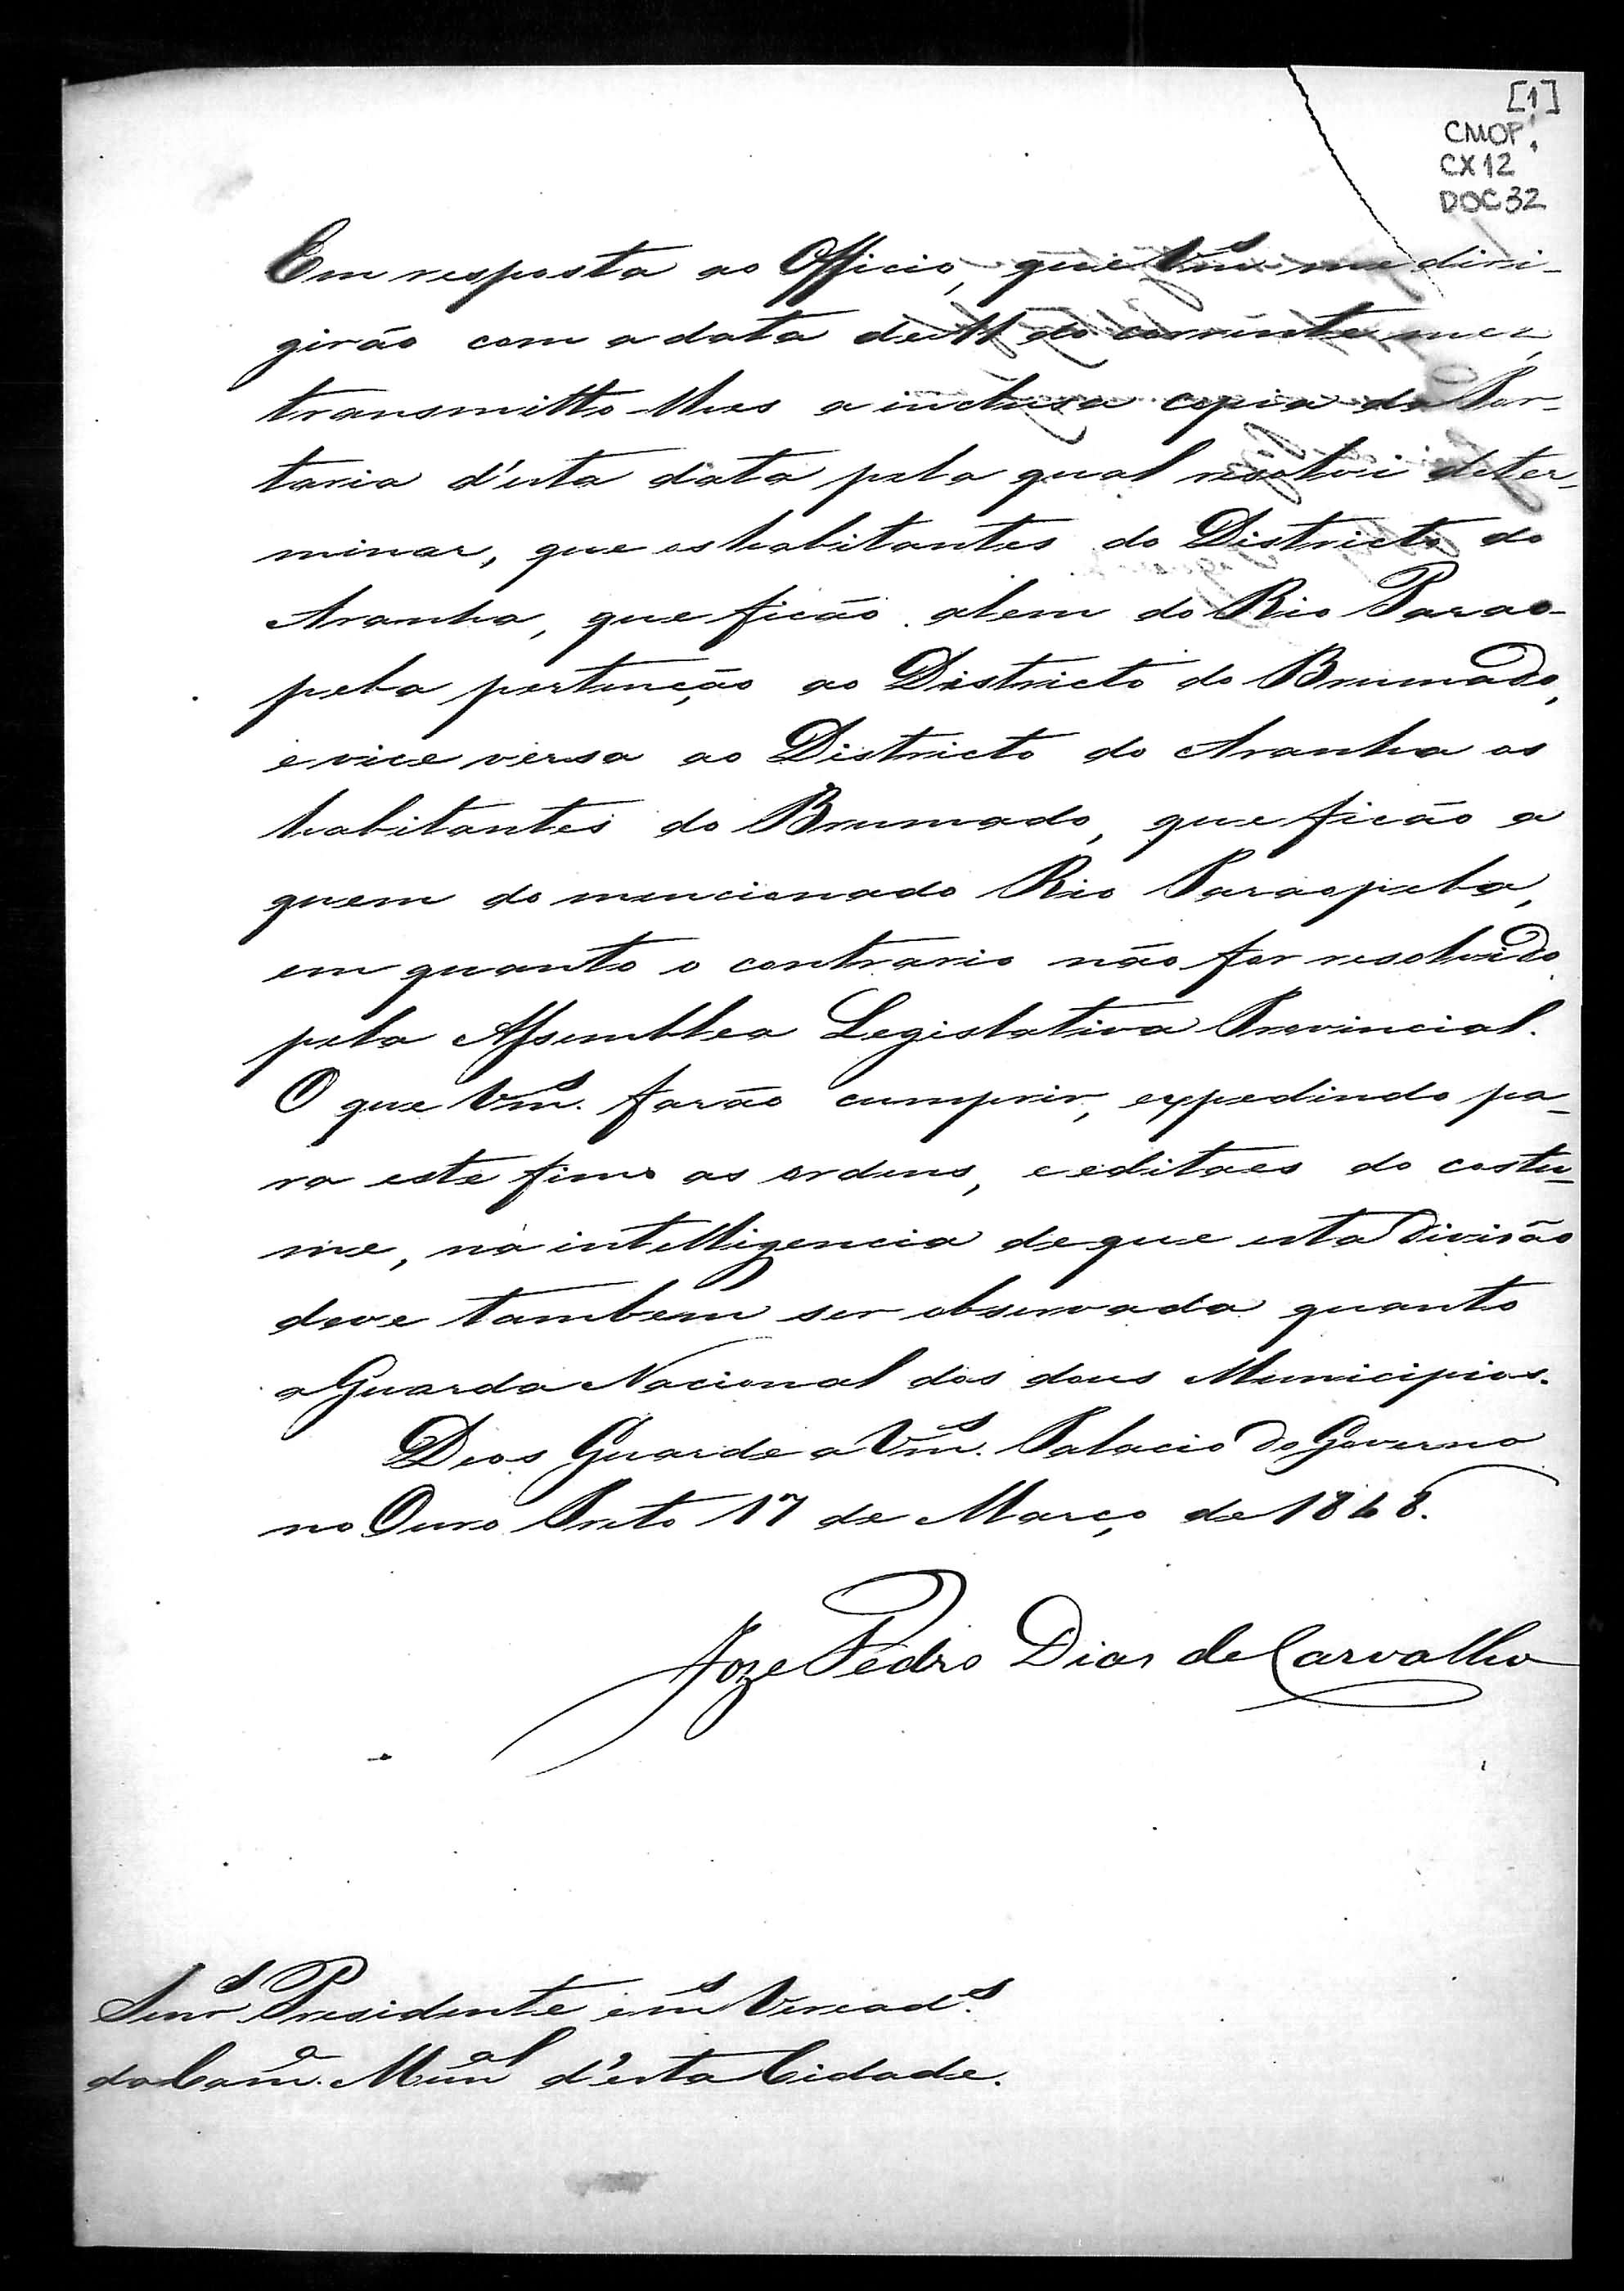 [1]
CMOP
CX12
DOC 32
Em resposta ao Officio, que Vm.s me diri-
girão com a data de 11 do corrente mez,
transmitto-lhes a inclusa copia da Por-
taria d'esta data pela qual resolvi deter-
minar, que os habitantes do Districto do
Aranha, que ficão alem do Rio Parao-
peba pertenção ao Districto do Brumado,
e vice versa ao Districto do Aranha os
habitantes do Brumado, que ficão a
quem do mencionado Rio Paraopeba,
em quanto o contrario não for resolvido
pela Assemblea Legislativa Provincial.
O que Vm.s farão cumprir, expedindo pa-
ra este fim as ordens, e editaes do costu-
me, na intelligencia de que esta divisão
deve tambem ser observada quanto
a Guarda Nacional dos dous Municipios.
Deos Guarde a Vm.s Palacio do Governo
no Ouro Preto 17 de Março de 1848.
Joze Pedro Dias de Carvalho
Senr.s Presidente e m.s Veread.s
da Cam.a Mun.al d'esta Cidade.